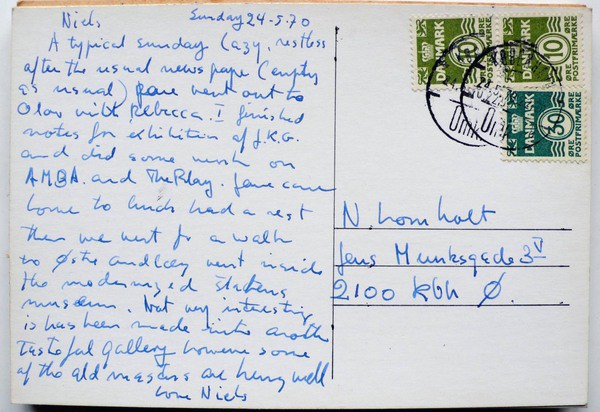 Niels Sunday 24-5.70
A typical sunday lazy, restless
after the usual news pape (empty
as usual) Jane went out to
Olav with Rebecca. I finished
notes for exhibition of J.K.G.
and did some work on
AMBA. and The Play. Jane came
home to lunch had a rest
then we went for a walk
to Østre and went inside
the modernized Statens
museum. Not very interesting
is has been made into another
tasteful gallery however some
of the old masters are hung well
love Niels
DANMARK 10 ØRE POSTFRIMÆRKE
DANMARK 10 ØRE POSTFRIMÆRKE
DANMARK 30 ØRE POSTFRIMÆRKE
N. Lomholt
Jens Munksgade 3 V
2100 Kbh Ø.